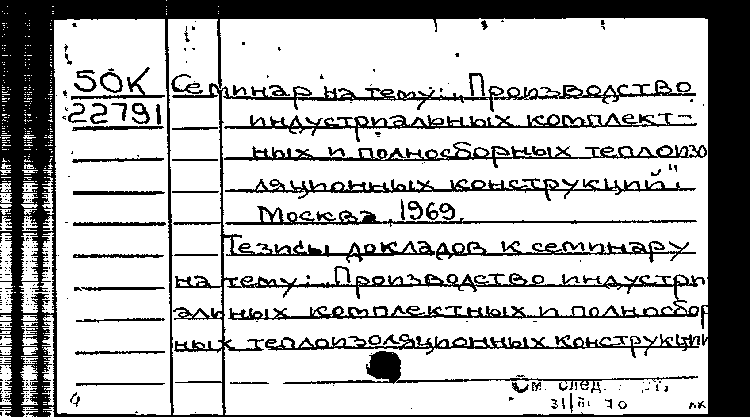 50К Семинар на тему: „Производство
22791 индустриальных комплект-
ных и полносборных теплоизо
ляционных конструкций".
Москва, 1969.
Тезисы докладов к семинару
на тему: „Производство индустри
альных комплектных и полносбор
ных теплоизоляционных конструкции
См. след.
31/III 70